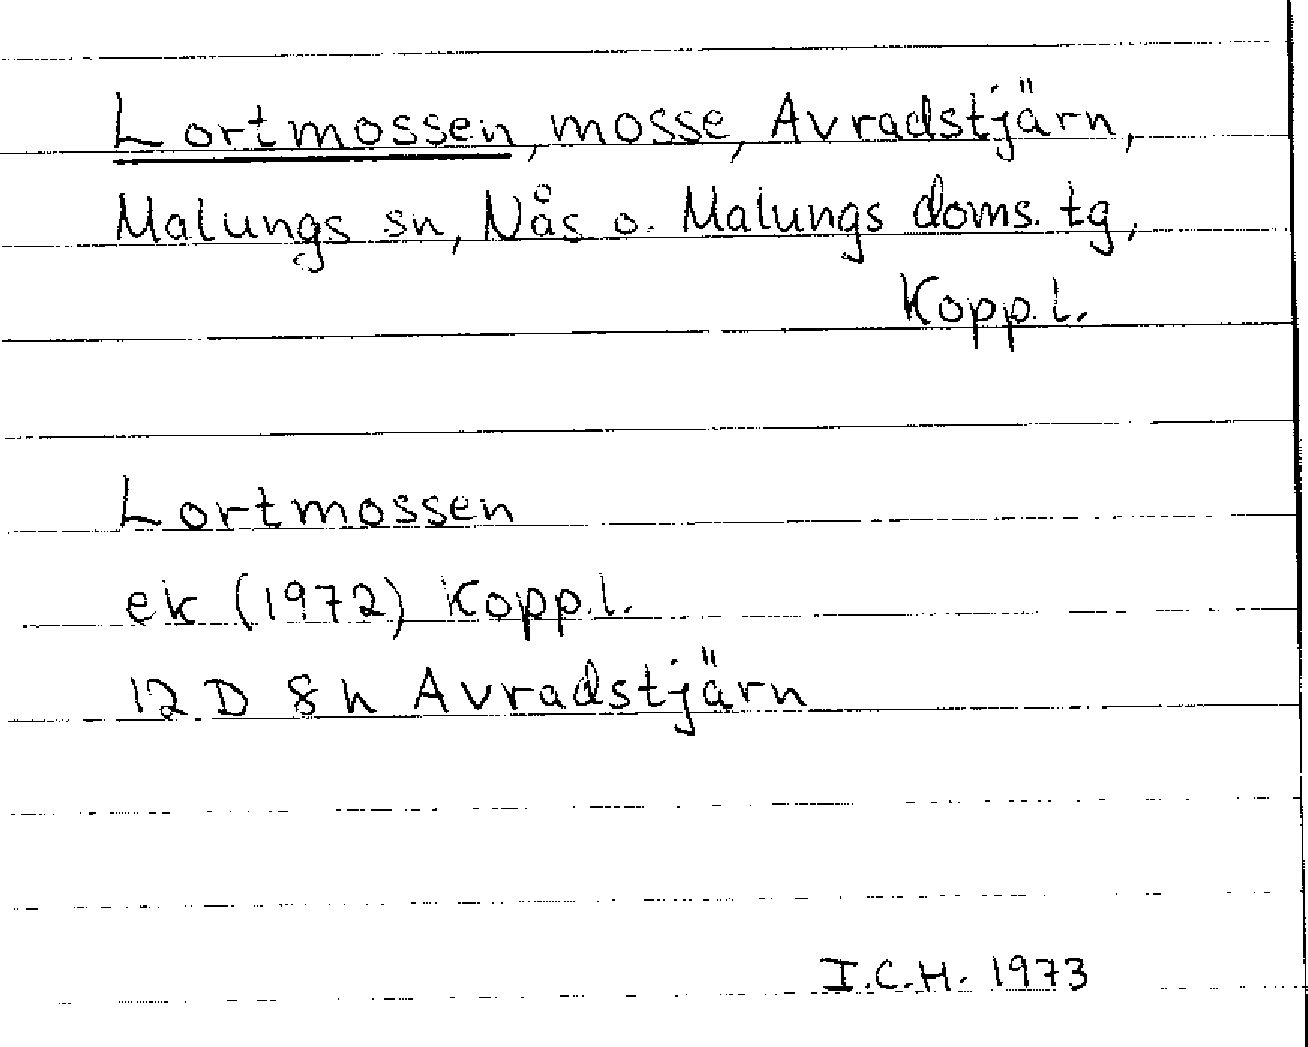 Lortmossen, mosse, Avradstjärn,
Malungs sn, Nås o. Malungs doms. tg,
Kopp. l.
Lortmossen
ek (1972) Kopp. l.
12 D 8 h Avradstjärn
I.C.H. 1973